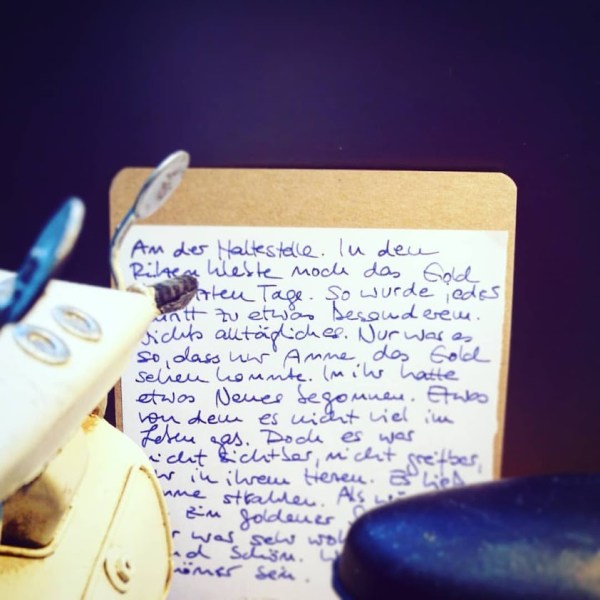 An der Haltestelle. In den
Ritzen klebte noch das Gold
Tage. So wurde jedes
zu etwas besonderem.
Nichts alltägliches. Nur war es
so, dass nur Anne das Gold
sehen konnte. In ihr hatte
etwas Neues begonnen. Etwas
von dem es nicht viel im
Leben gab. Doch es war
nicht sichtbar, nicht greifbar,
nur in ihrem Herzen. Es ließ
Anne strahlen. Als
Ein goldener
war sehr
und schön.
sein.